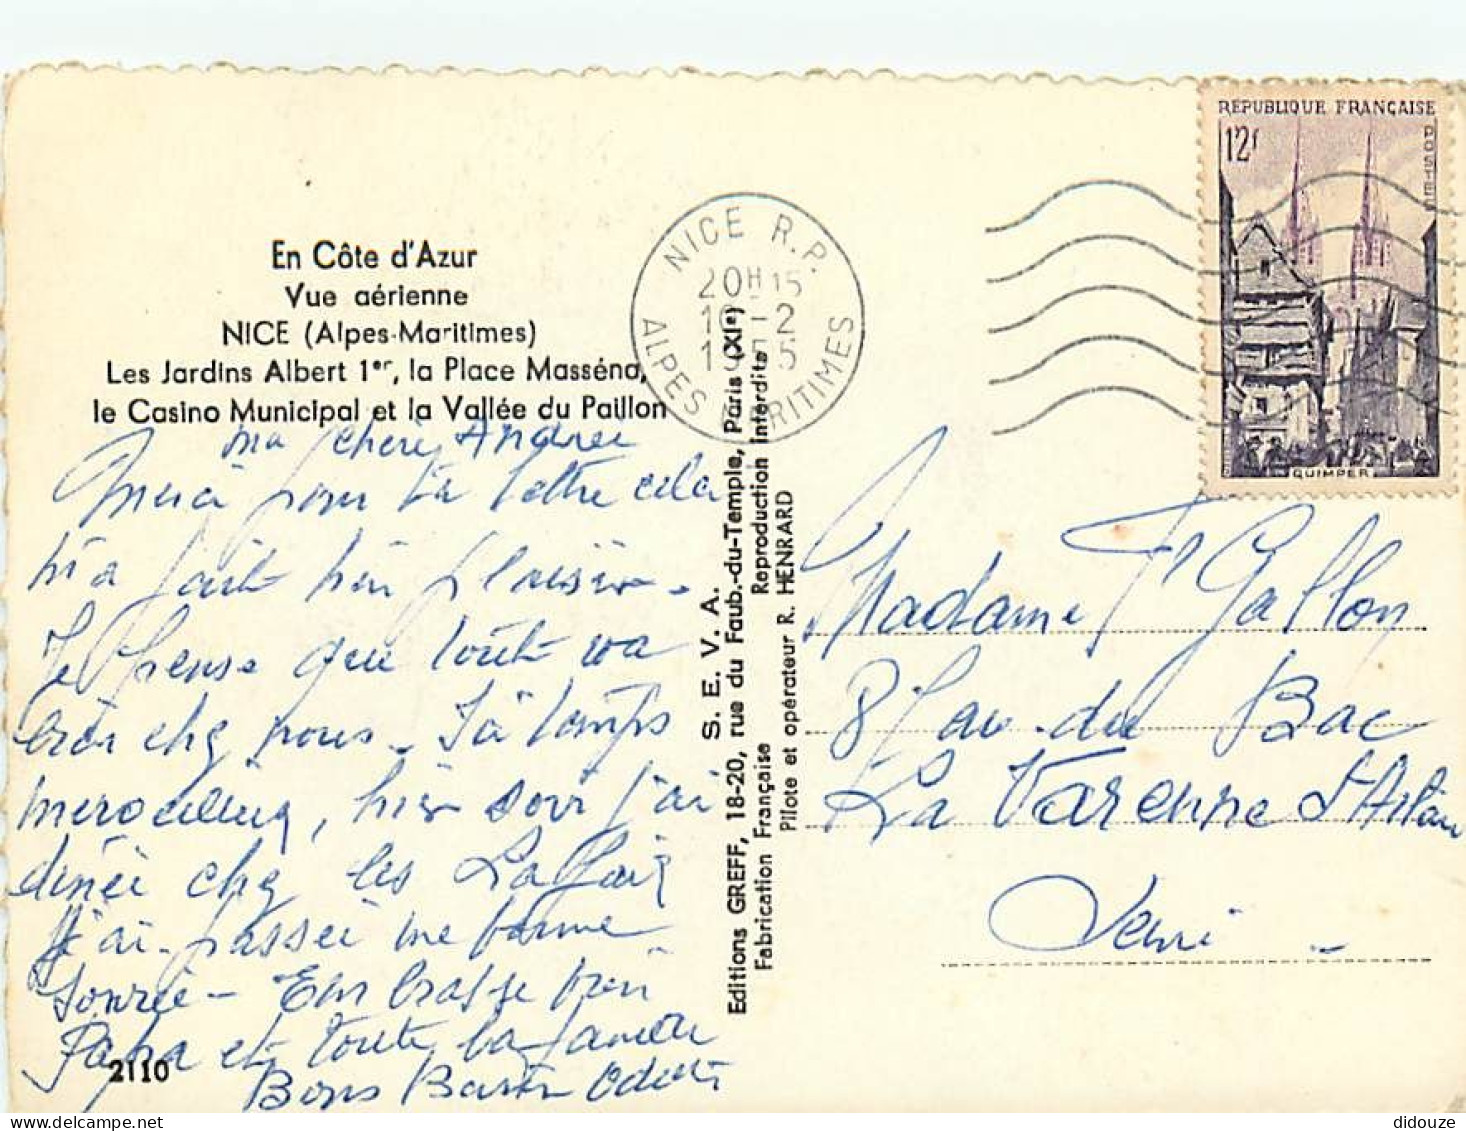 En Côte d'Azur
Vue aérienne
NICE (Alpes-Maritimes)
Les Jardins Albert 1er, la Place Masséna,
le Casino Municipal et la Vallée du Paillon
ma cheri Andrei
Merci pour ta lettre cela
m'a fait bien plaisir.
Je pense que toute va
bien chez vous. J'ai temps
merveilleux, hier soir j'ai
dinéé chez les
J'ai passéi une bonne
soirée – Embrasse bien
Papa et toute la famille
Bons Baisers Odette
2110
Editions GREFF, 18-20, rue du Faub.-du-Temple, Paris (XIe)
S. E. V. A.
Fabrication Française
Reproduction Interdite
Pilote et opérateur R. HENRARD
NICE R.P.
20H15
-2
ALPES MARITIMES
REPUBLIQUE FRANÇAISE
12f
POSTES
QUIMPER
Madame Gallon
8 av. du Bac
La Varenne St Hilaire
Seine
didouze